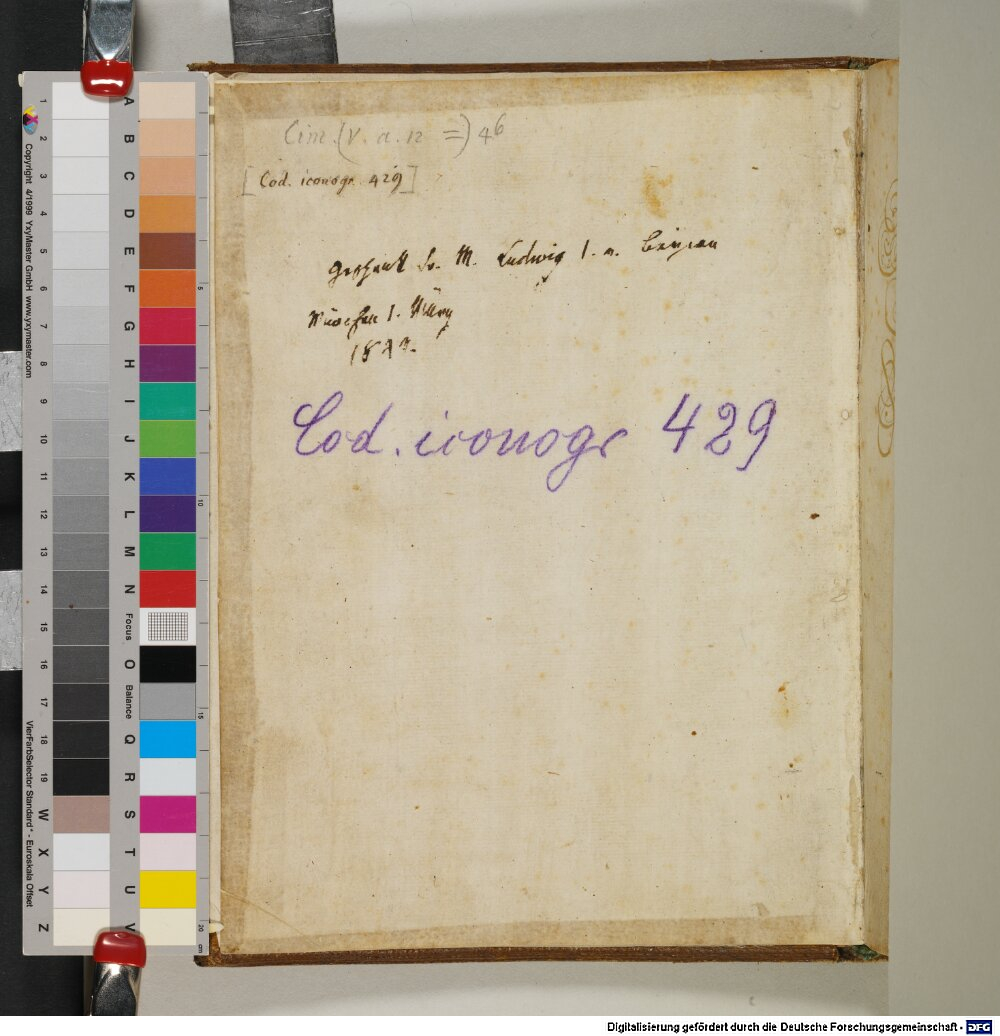 Cim. (V. a. n =) 46
[ Cod. iconogr. 429 ]
Geschenk Sr. M. Ludwig I. v. Bayern
München 1. März
Cod. iconogr 429
Copyright 4/1999 YxyMaster GmbH www.yxymaster.com
VierFarbSelector Standard* - Euroskala Offset
1 2 3 4 5 6 7 8 9 10 11 12 13 14 15 16 17 18 19 W X Y Z
A B C D E F G H I J K L M N Focus O Balance Q R S T U V
5 10 15 20 cm
Digitalisierung gefördert durch die Deutsche Forschungsgemeinschaft - DFG